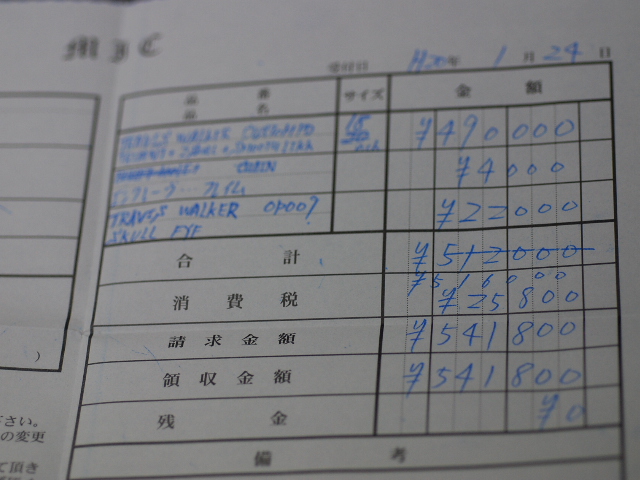 MJC
受付日 H20年 1月 24日
品番 品名 サイズ 金額
TRAVIS WALKER ¥490000
CHAIN ¥4000
エングレーヴ… フレイム
TRAVIS WALKER OP007 ¥22000
SKULL EYE
合計 ¥512000
¥516000
消費税 ¥25800
請求金額 ¥541800
領収金額 ¥541800
残金 ¥0
備考
)
下さい。
の変更
て頂き